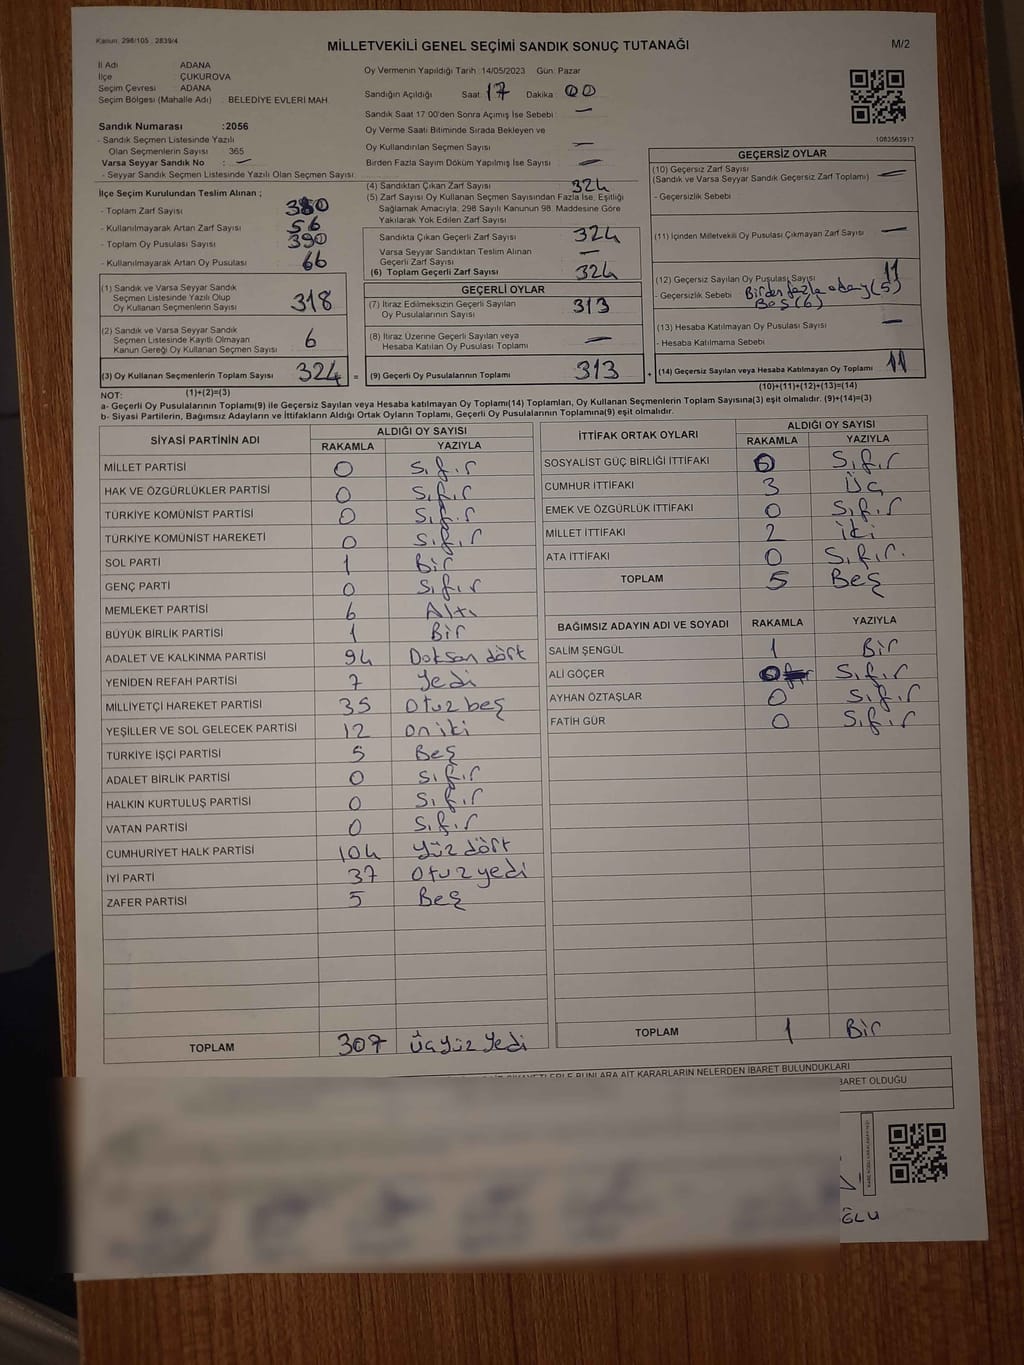 Kanun: 298/105 : 2839/4
MİLLETVEKİLİ GENEL SEÇİMİ SANDIK SONUÇ TUTANAĞI
M/2
İl Adı : ADANA
İlçe : ÇUKUROVA
Seçim Çevresi : ADANA
Seçim Bölgesi (Mahalle Adı) : BELEDİYE EVLERİ MAH.
Sandık Numarası :2056
- Sandık Seçmen Listesinde Yazılı
Olan Seçmenlerin Sayısı : 365
Varsa Seyyar Sandık No : —
- Seyyar Sandık Seçmen Listesinde Yazılı Olan Seçmen Sayısı:
Oy Vermenin Yapıldığı Tarih :14/05/2023 Gün: Pazar
Sandığın Açıldığı Saat: 17 Dakika: 00
Sandık Saat 17:00'den Sonra Açımış İse Sebebi : —
Oy Verme Saati Bitiminde Sırada Bekleyen ve
Oy Kullandırılan Seçmen Sayısı : —
Birden Fazla Sayım Döküm Yapılmış İse Sayısı : —
1083563917
İlçe Seçim Kurulundan Teslim Alınan ;
- Toplam Zarf Sayısı : 380
- Kullanılmayarak Artan Zarf Sayısı : 56
- Toplam Oy Pusulası Sayısı : 390
- Kullanılmayarak Artan Oy Pusulası : 66
(1) Sandık ve Varsa Seyyar Sandık
Seçmen Listesinde Yazılı Olup
Oy Kullanan Seçmenlerin Sayısı : 318
(2) Sandık ve Varsa Seyyar Sandık
Seçmen Listesinde Kayıtlı Olmayan
Kanun Gereği Oy Kullanan Seçmen Sayısı : 6
(3) Oy Kullanan Seçmenlerin Toplam Sayısı : 324
(1)+(2)=(3)
(4) Sandıktan Çıkan Zarf Sayısı : 324
(5) Zarf Sayısı Oy Kullanan Seçmen Sayısından Fazla İse, Eşitliği
Sağlamak Amacıyla; 298 Sayılı Kanunun 98. Maddesine Göre
Yakılarak Yok Edilen Zarf Sayısı
Sandıkta Çıkan Geçerli Zarf Sayısı : 324
Varsa Seyyar Sandıktan Teslim Alınan
Geçerli Zarf Sayısı : —
(6) Toplam Geçerli Zarf Sayısı : 324
GEÇERLİ OYLAR
(7) İtiraz Edilmeksizin Geçerli Sayılan
Oy Pusulalarının Sayısı : 313
(8) İtiraz Üzerine Geçerli Sayılan veya
Hesaba Katılan Oy Pusulası Toplamı : —
(9) Geçerli Oy Pusulalarının Toplamı : 313
GEÇERSİZ OYLAR
(10) Geçersiz Zarf Sayısı
(Sandık ve Varsa Seyyar Sandık Geçersiz Zarf Toplamı) : —
- Geçersizlik Sebebi :
(11) İçinden Milletvekili Oy Pusulası Çıkmayan Zarf Sayısı : —
(12) Geçersiz Sayılan Oy Pusulası Sayısı : 11
- Geçersizlik Sebebi : Birden fazla aday (5)
Boş (6)
(13) Hesaba Katılmayan Oy Pusulası Sayısı : —
- Hesaba Katılmama Sebebi :
(14) Geçersiz Sayılan veya Hesaba Katılmayan Oy Toplamı : 11
(10)+(11)+(12)+(13)=(14)
NOT:
a- Geçerli Oy Pusulalarının Toplamı(9) ile Geçersiz Sayılan veya Hesaba Katılmayan Oy Toplamı(14) Toplamları, Oy Kullanan Seçmenlerin Toplam Sayısına(3) eşit olmalıdır. (9)+(14)=(3)
b- Siyasi Partilerin, Bağımsız Adayların ve İttifakların Aldığı Ortak Oyların Toplamı, Geçerli Oy Pusulalarının Toplamına(9) eşit olmalıdır.
SİYASİ PARTİNİN ADI ALDIĞI OY SAYISI
RAKAMLA YAZIYLA
MİLLET PARTİSİ 0 Sıfır
HAK VE ÖZGÜRLÜKLER PARTİSİ 0 Sıfır
TÜRKİYE KOMÜNİST PARTİSİ 0 Sıfır
TÜRKİYE KOMÜNİST HAREKETİ 0 Sıfır
SOL PARTİ 1 Bir
GENÇ PARTİ 0 Sıfır
MEMLEKET PARTİSİ 6 Altı
BÜYÜK BİRLİK PARTİSİ 1 Bir
ADALET VE KALKINMA PARTİSİ 94 Doksan dört
YENİDEN REFAH PARTİSİ 7 Yedi
MİLLİYETÇİ HAREKET PARTİSİ 35 Otuz beş
YEŞİLLER VE SOL GELECEK PARTİSİ 12 on iki
TÜRKİYE İŞÇİ PARTİSİ 5 Beş
ADALET BİRLİK PARTİSİ 0 Sıfır
HALKIN KURTULUŞ PARTİSİ 0 Sıfır
VATAN PARTİSİ 0 Sıfır
CUMHURİYET HALK PARTİSİ 104 Yüz dört
İYİ PARTİ 37 Otuz yedi
ZAFER PARTİSİ 5 Beş
TOPLAM 307 Üçyüz Yedi
İTTİFAK ORTAK OYLARI ALDIĞI OY SAYISI
RAKAMLA YAZIYLA
SOSYALİST GÜÇ BİRLİĞİ İTTİFAKI 0 Sıfır
CUMHUR İTTİFAKI 3 Üç
EMEK VE ÖZGÜRLÜK İTTİFAKI 0 Sıfır
MİLLET İTTİFAKI 2 iki
ATA İTTİFAKI 0 Sıfır.
TOPLAM 5 Beş
BAĞIMSIZ ADAYIN ADI VE SOYADI RAKAMLA YAZIYLA
SALİM ŞENGÜL 1 Bir
ALİ GÖÇER 0 Sıfır
AYHAN ÖZTAŞLAR 0 Sıfır
FATİH GÜR 0 Sıfır
TOPLAM 1 Bir
BUNLARA AİT KARARLARIN NELERDEN İBARET BULUNDUKLARI
BARET OLDUĞU
ĞLU